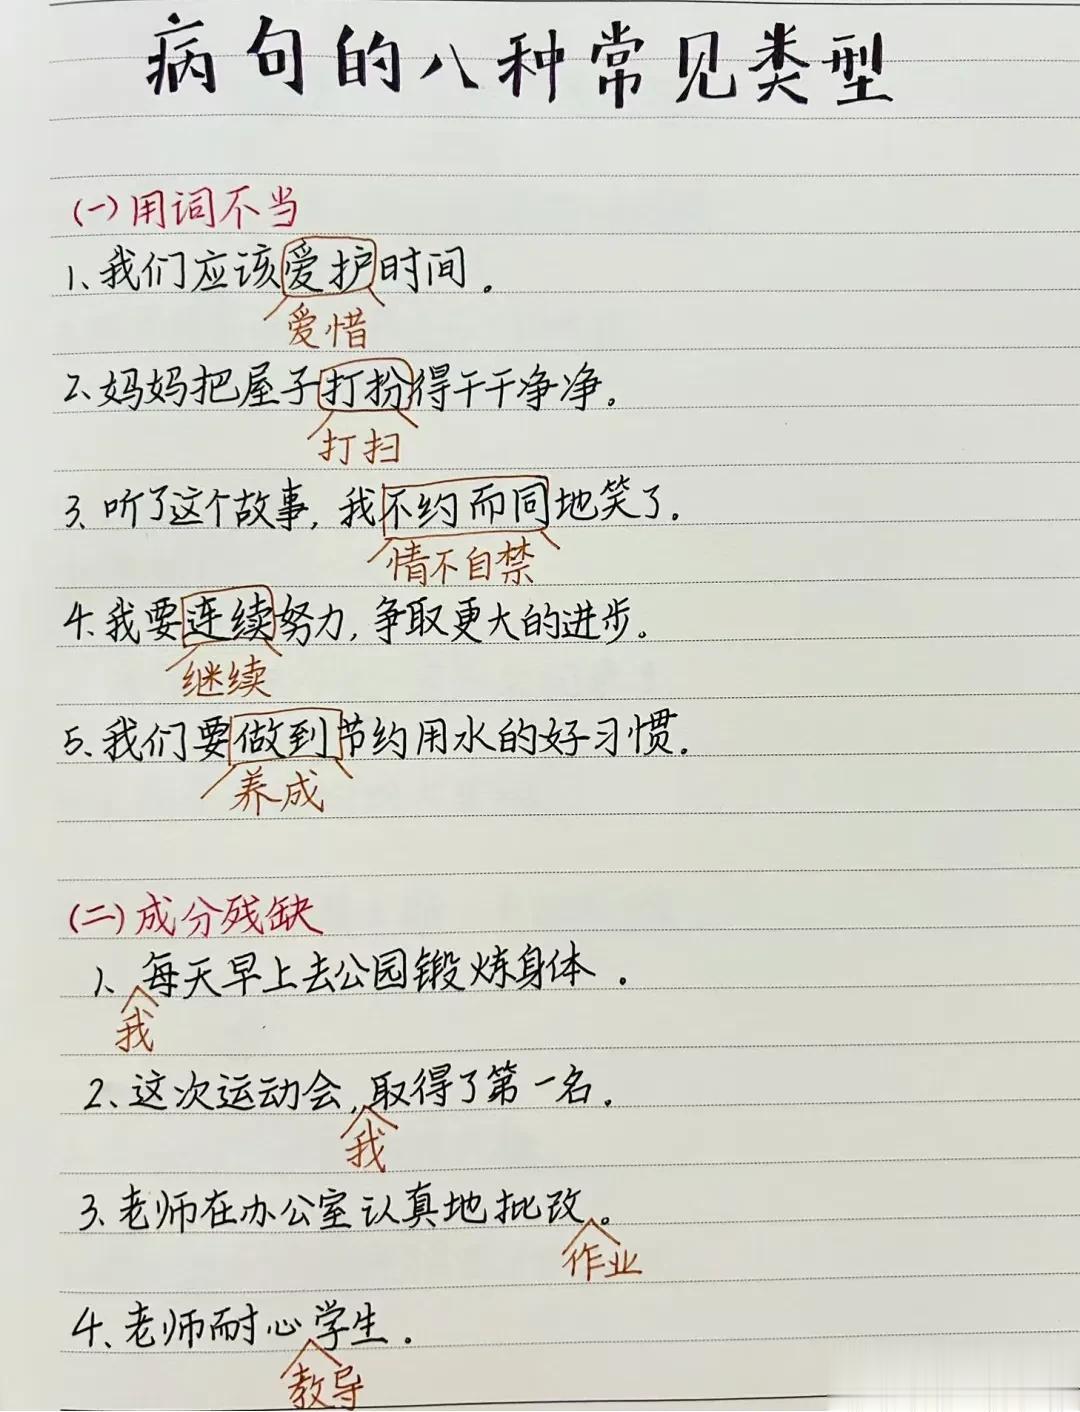 病句的八种常见类型
(一)用词不当
1、我们应该爱护时间。
爱惜
2、妈妈把屋子打扮得干干净净。
打扫
3、听了这个故事,我不约而同地笑了。
情不自禁
4、我要连续努力,争取更大的进步。
继续
5、我们要做到节约用水的好习惯。
养成
(二)成分残缺
1、每天早上去公园锻炼身体。
我
2、这次运动会,取得了第一名。
我
3、老师在办公室认真地批改。
作业
4、老师耐心学生。
教导